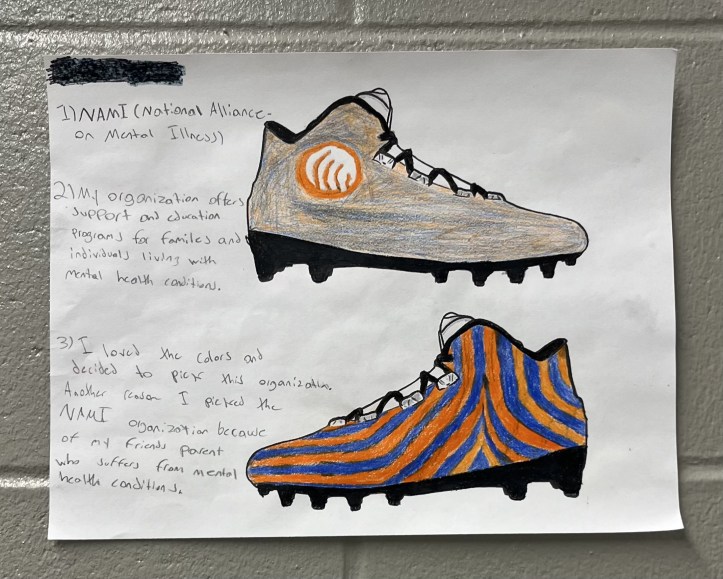 1) NAMI (National Alliance
on Mental Illness)
2) My organization offers
support and education
programs for familes and
individuals living with
mental health conditions.
3) I loved the colors and
decided to pick this organization.
Another reason I picked the
NAMI organization because
of my friends parent
who suffers from mental
health conditions.